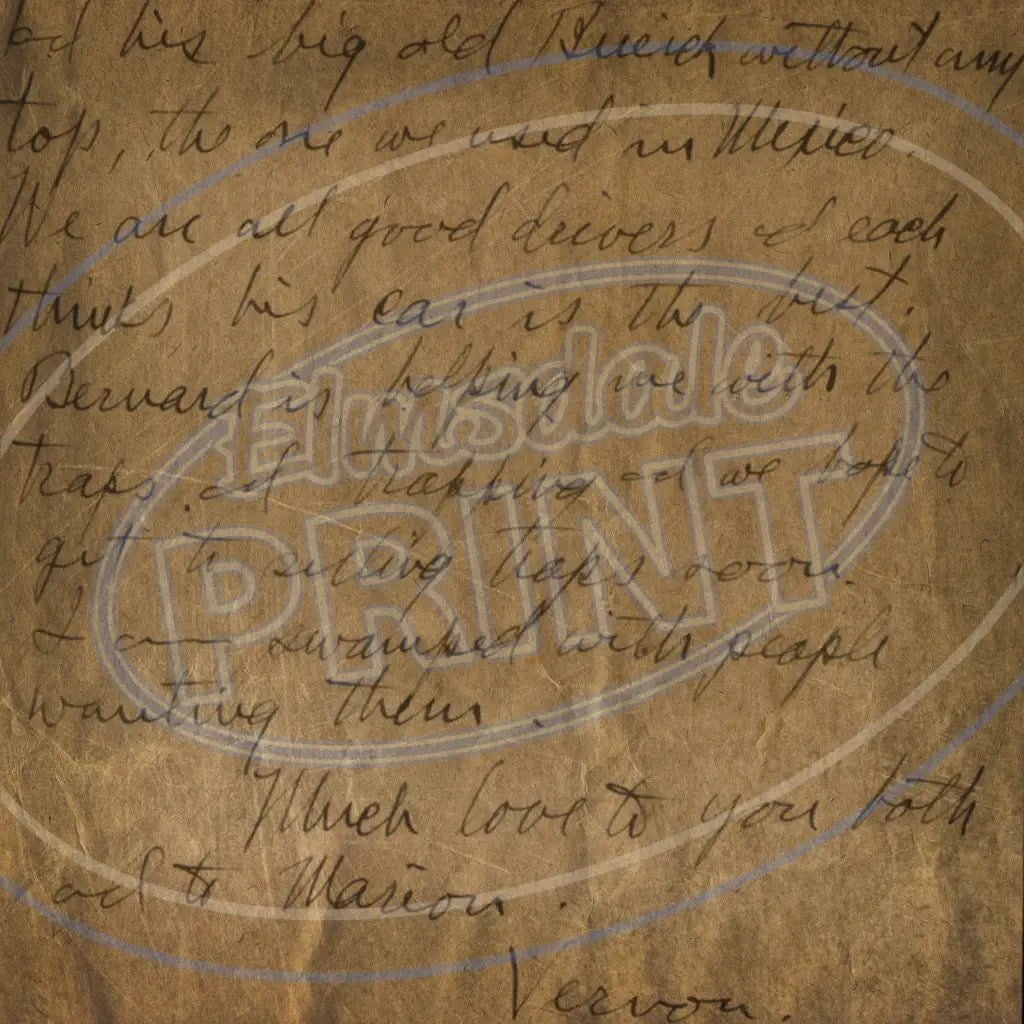 ad his big old Buick without any
top, the one we used in Mexico.
We are all good drivers ad each
thinks his car is the best.
Bernard is helping me with the
traps ad trapping ad we hope to
get to selling traps soon.
I am swamped with people
wanting them.
Much love to you both
ad to Marion.
Vernon.
Elmsdale
PRINT